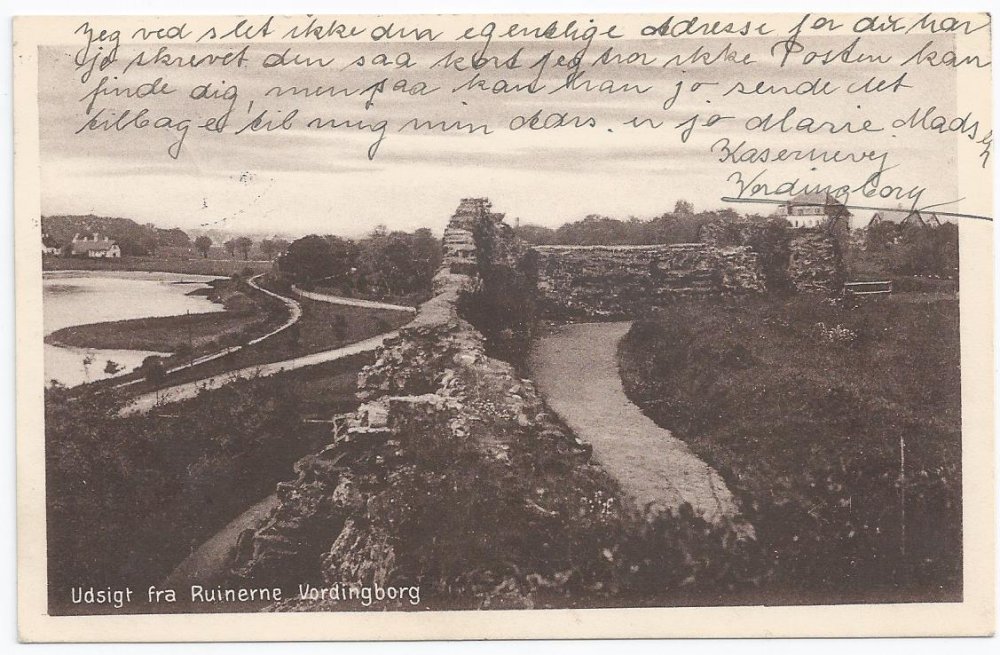 Jeg ved slet ikke din egentlige Adresse for du har
jo skrevet den saa kort jeg tror ikke Posten kan
finde dig, men saa kan han jo sende det
tilbage til mig min Adrs. er jo Marie Madsen
Kasernevej
Vordingborg
Udsigt fra Ruinerne Vordingborg